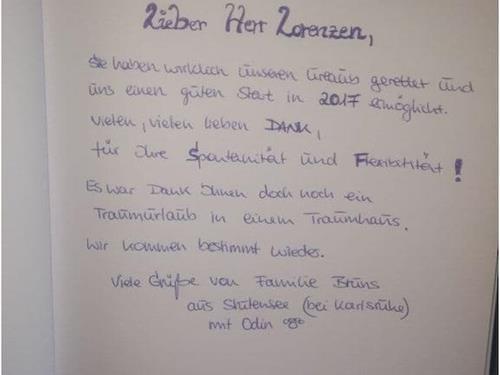 Lieber Herr Lorenzen,
Sie haben wirklich unseren Urlaub gerettet und
uns einen guten Start in 2017 ermöglicht.
Vielen, vielen lieben DANK,
für Ihre Spontanität und Flexibilität!
Es war Dank Ihnen doch noch ein
Traumurlaub in einem Traumhaus.
Wir kommen bestimmt wieder.
Viele Grüße von Familie Bruns
aus Stutensee (bei Karlsruhe)
mit Odin